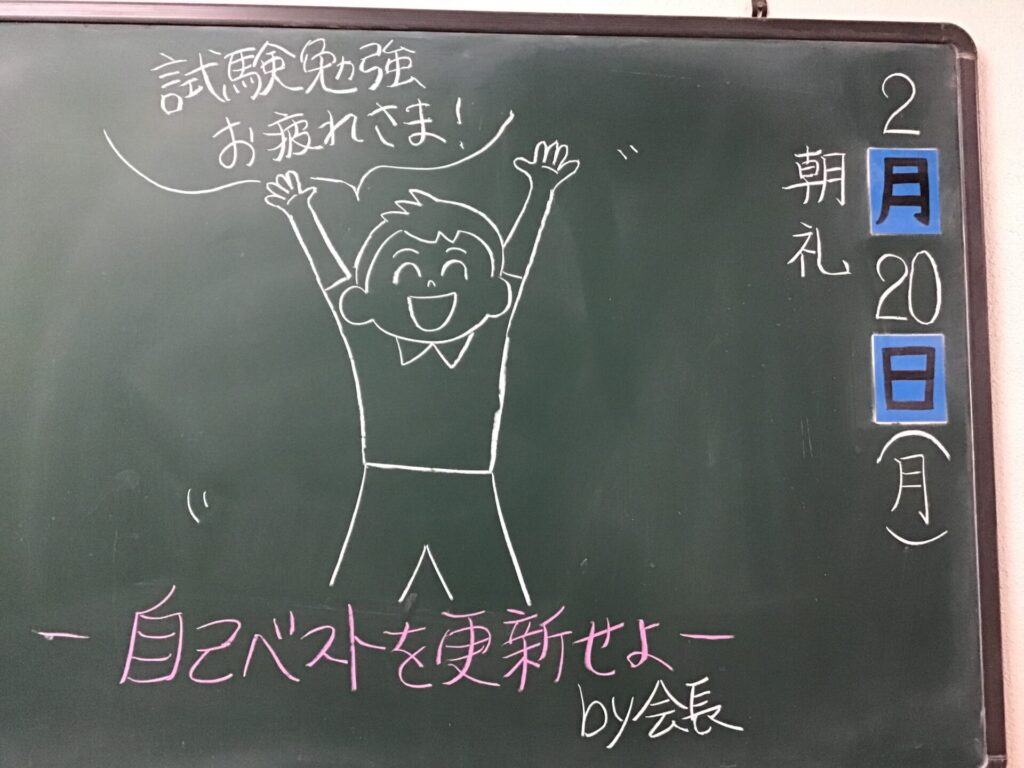 2月20日(月)
朝礼
試験勉強
お疲れさま！
ー自己ベストを更新せよー
by会長